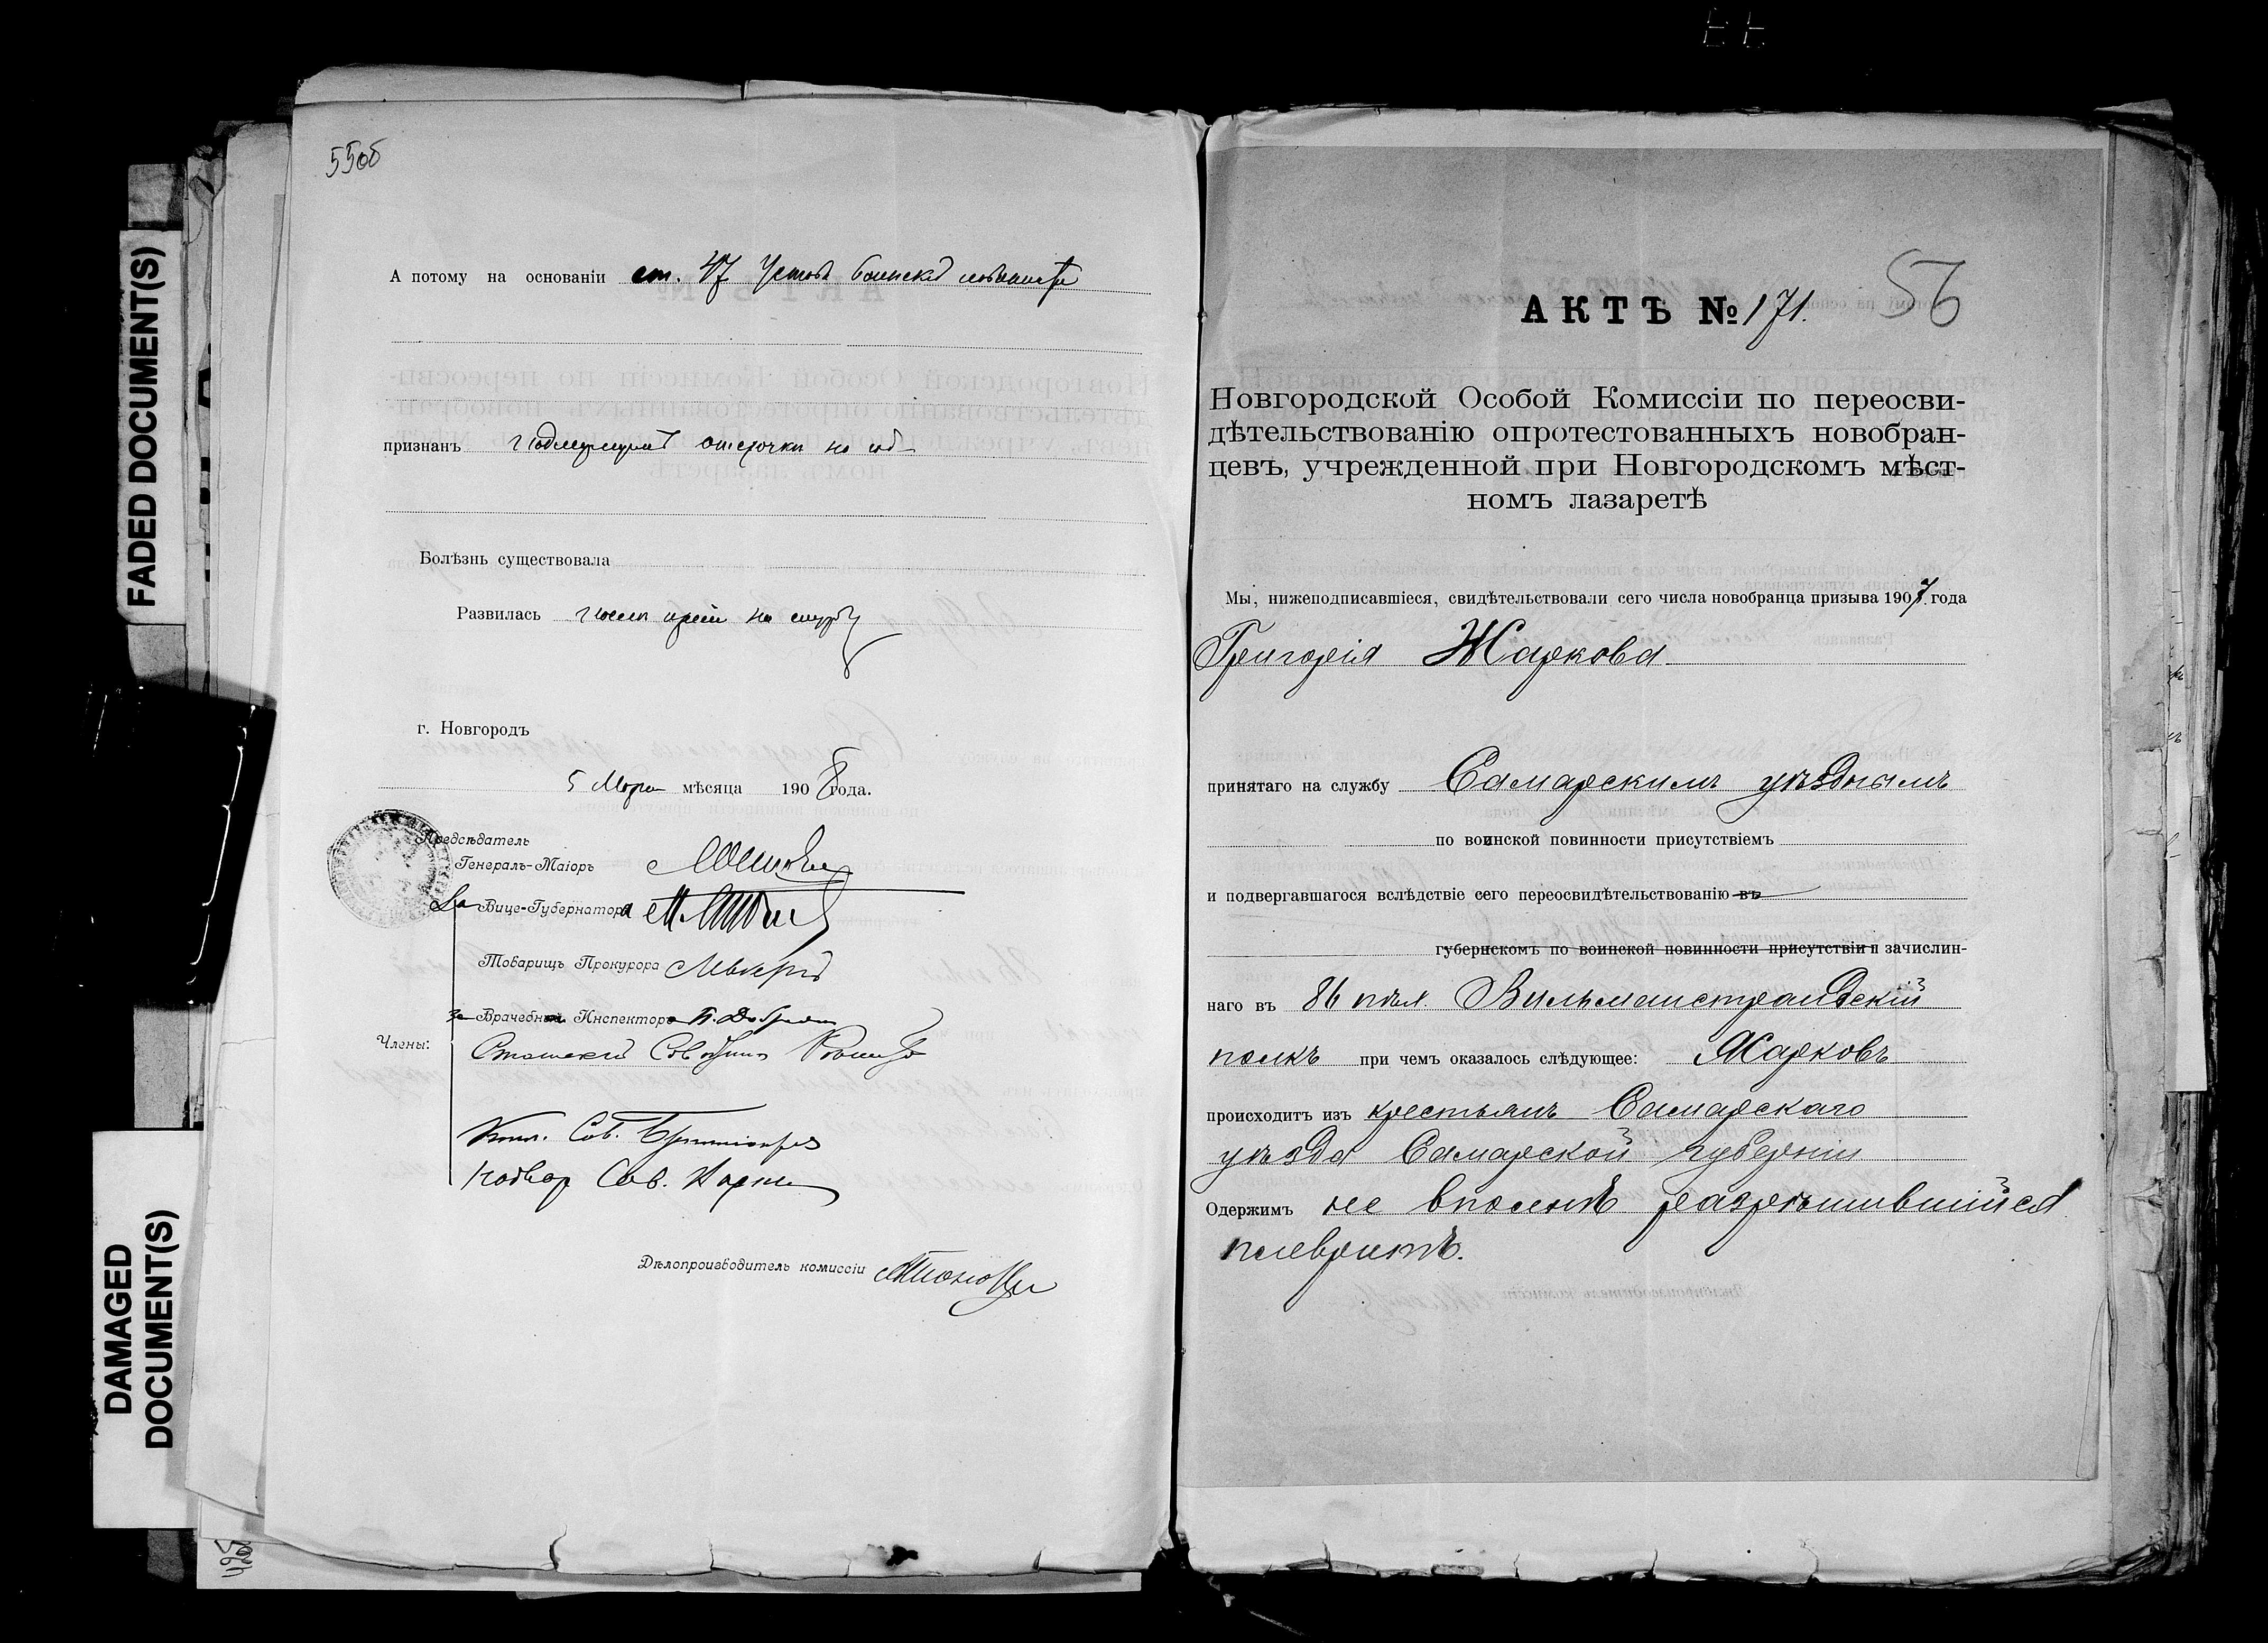 FADED DOCUMENT(S)
DAMAGED
DOCUMENT(S)
55об
А потому на основаніи ст. 47 Устава воинской повинности
признанъ подлежащимъ отсрочки на годъ
Болѣзнь существовала
Развилась после прiема на службу
г. Новгородъ
5 Марта мѣсяца 1908 года.
Предсѣдатель
Генералъ-Маіоръ
За Вице-Губернатора
Товарищъ Прокурора
За Врачебн Инспектора
Члены:
Статскій Совѣтникъ
Кол. Сов.
Надвор Сов.
Дѣлопроизводитель комиссіи
56
АКТЪ № 171.
Новгородской Особой Комиссіи по переосви-
дѣтельствованію опротестованныхъ новобран-
цевъ, учрежденной при Новгородскомъ мѣст-
номъ лазаретѣ
Мы, нижеподписавшіеся, свидѣтельствовали сего числа новобранца призыва 1907 года
Григорія Жаркова
принятаго на службу Самарскимъ уѣзднымъ
по воинской повинности присутствіемъ
и подвергавшагося вслѣдствіе сего переосвидѣтельствованію въ
губернскомъ по воинской повинности присутствіи и зачислин-
наго въ 86 пѣх. Вильманстрандскій
полкъ при чемъ оказалось слѣдующее: Жарковъ
происходитъ изъ крестьянъ Самарскаго
уѣзда Самарской губерніи
Одержимъ не вполнѣ разрѣшившійся
плевритъ.